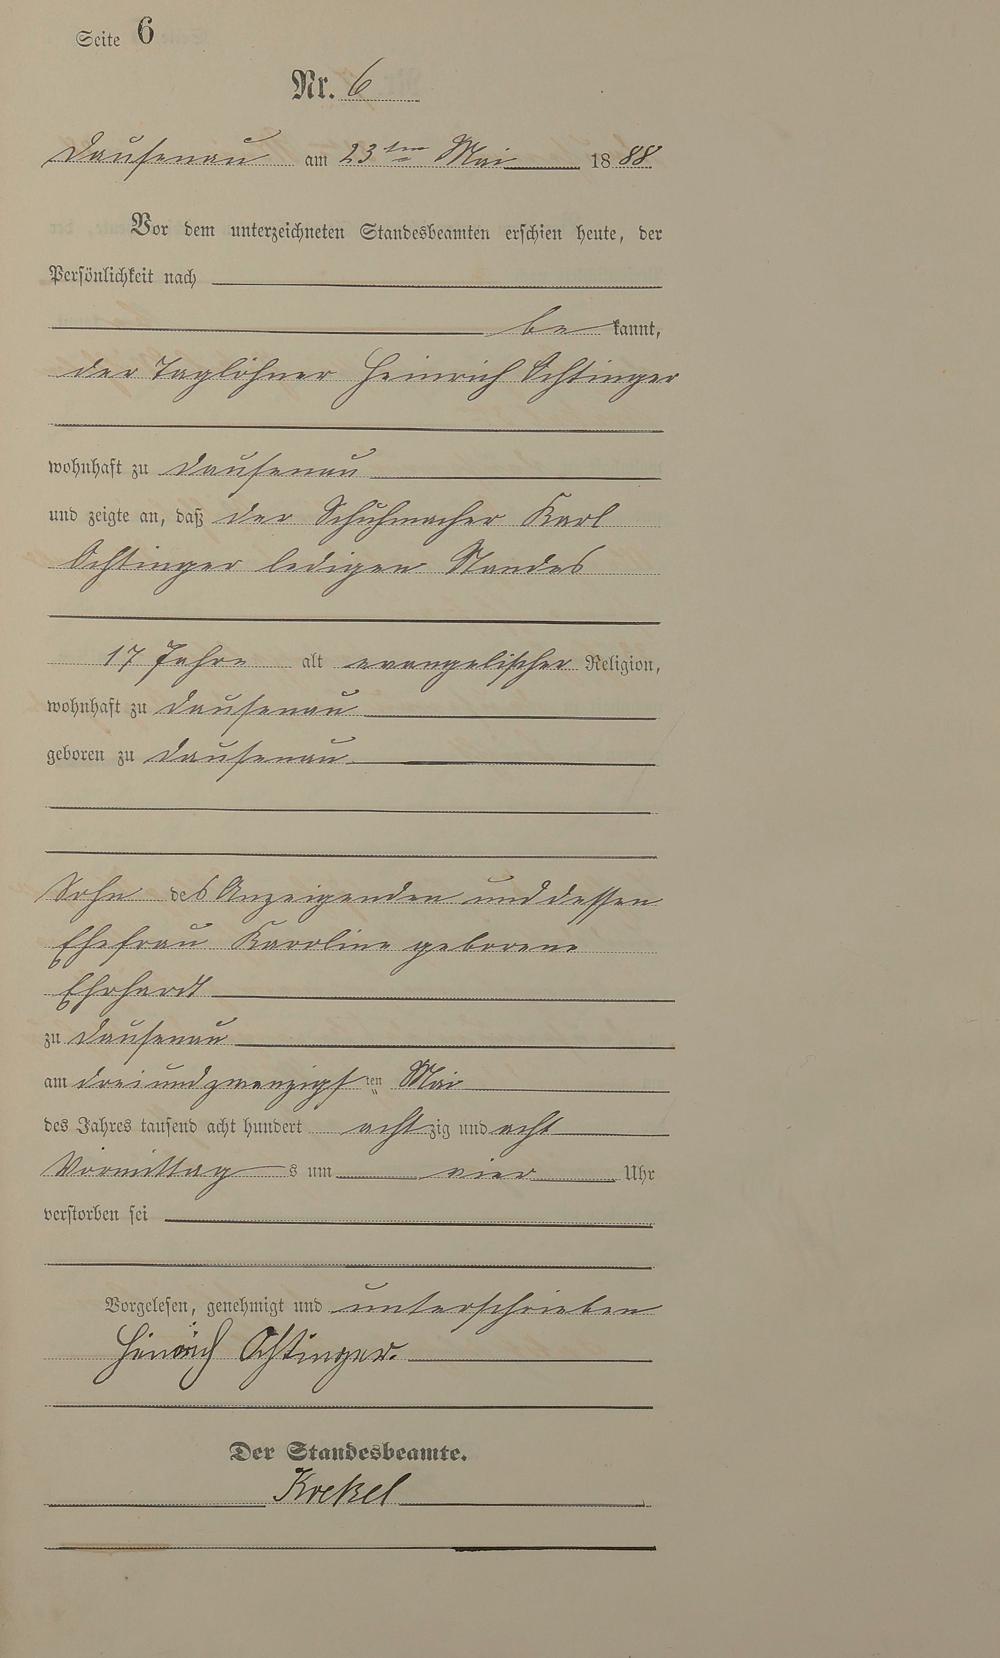 Seite 6
Nr. 6
Dausenau am 23ten Mai 1888
Vor dem unterzeichneten Standesbeamten erschien heute, der
Persönlichkeit nach
be kannt,
der Taglöhner Heinrich Ochtinger
wohnhaft zu Dausenau
und zeigte an, daß der Schuhmacher Karl
Ochtinger ledigen Standes
17 Jahre alt evangelischer Religion,
wohnhaft zu Dausenau
geboren zu Dausenau
Sohn des Anzeigenden und dessen
Ehefrau Karoline geborene
Ehrhardt
zu Dausenau
am dreiundzwanzigsten Mai
des Jahres tausend acht hundert achtzig und acht
Vormittags um vier Uhr
verstorben sei
Vorgelesen, genehmigt und unterschrieben
Heinrich Ochtinger.
Der Standesbeamte.
Krekel